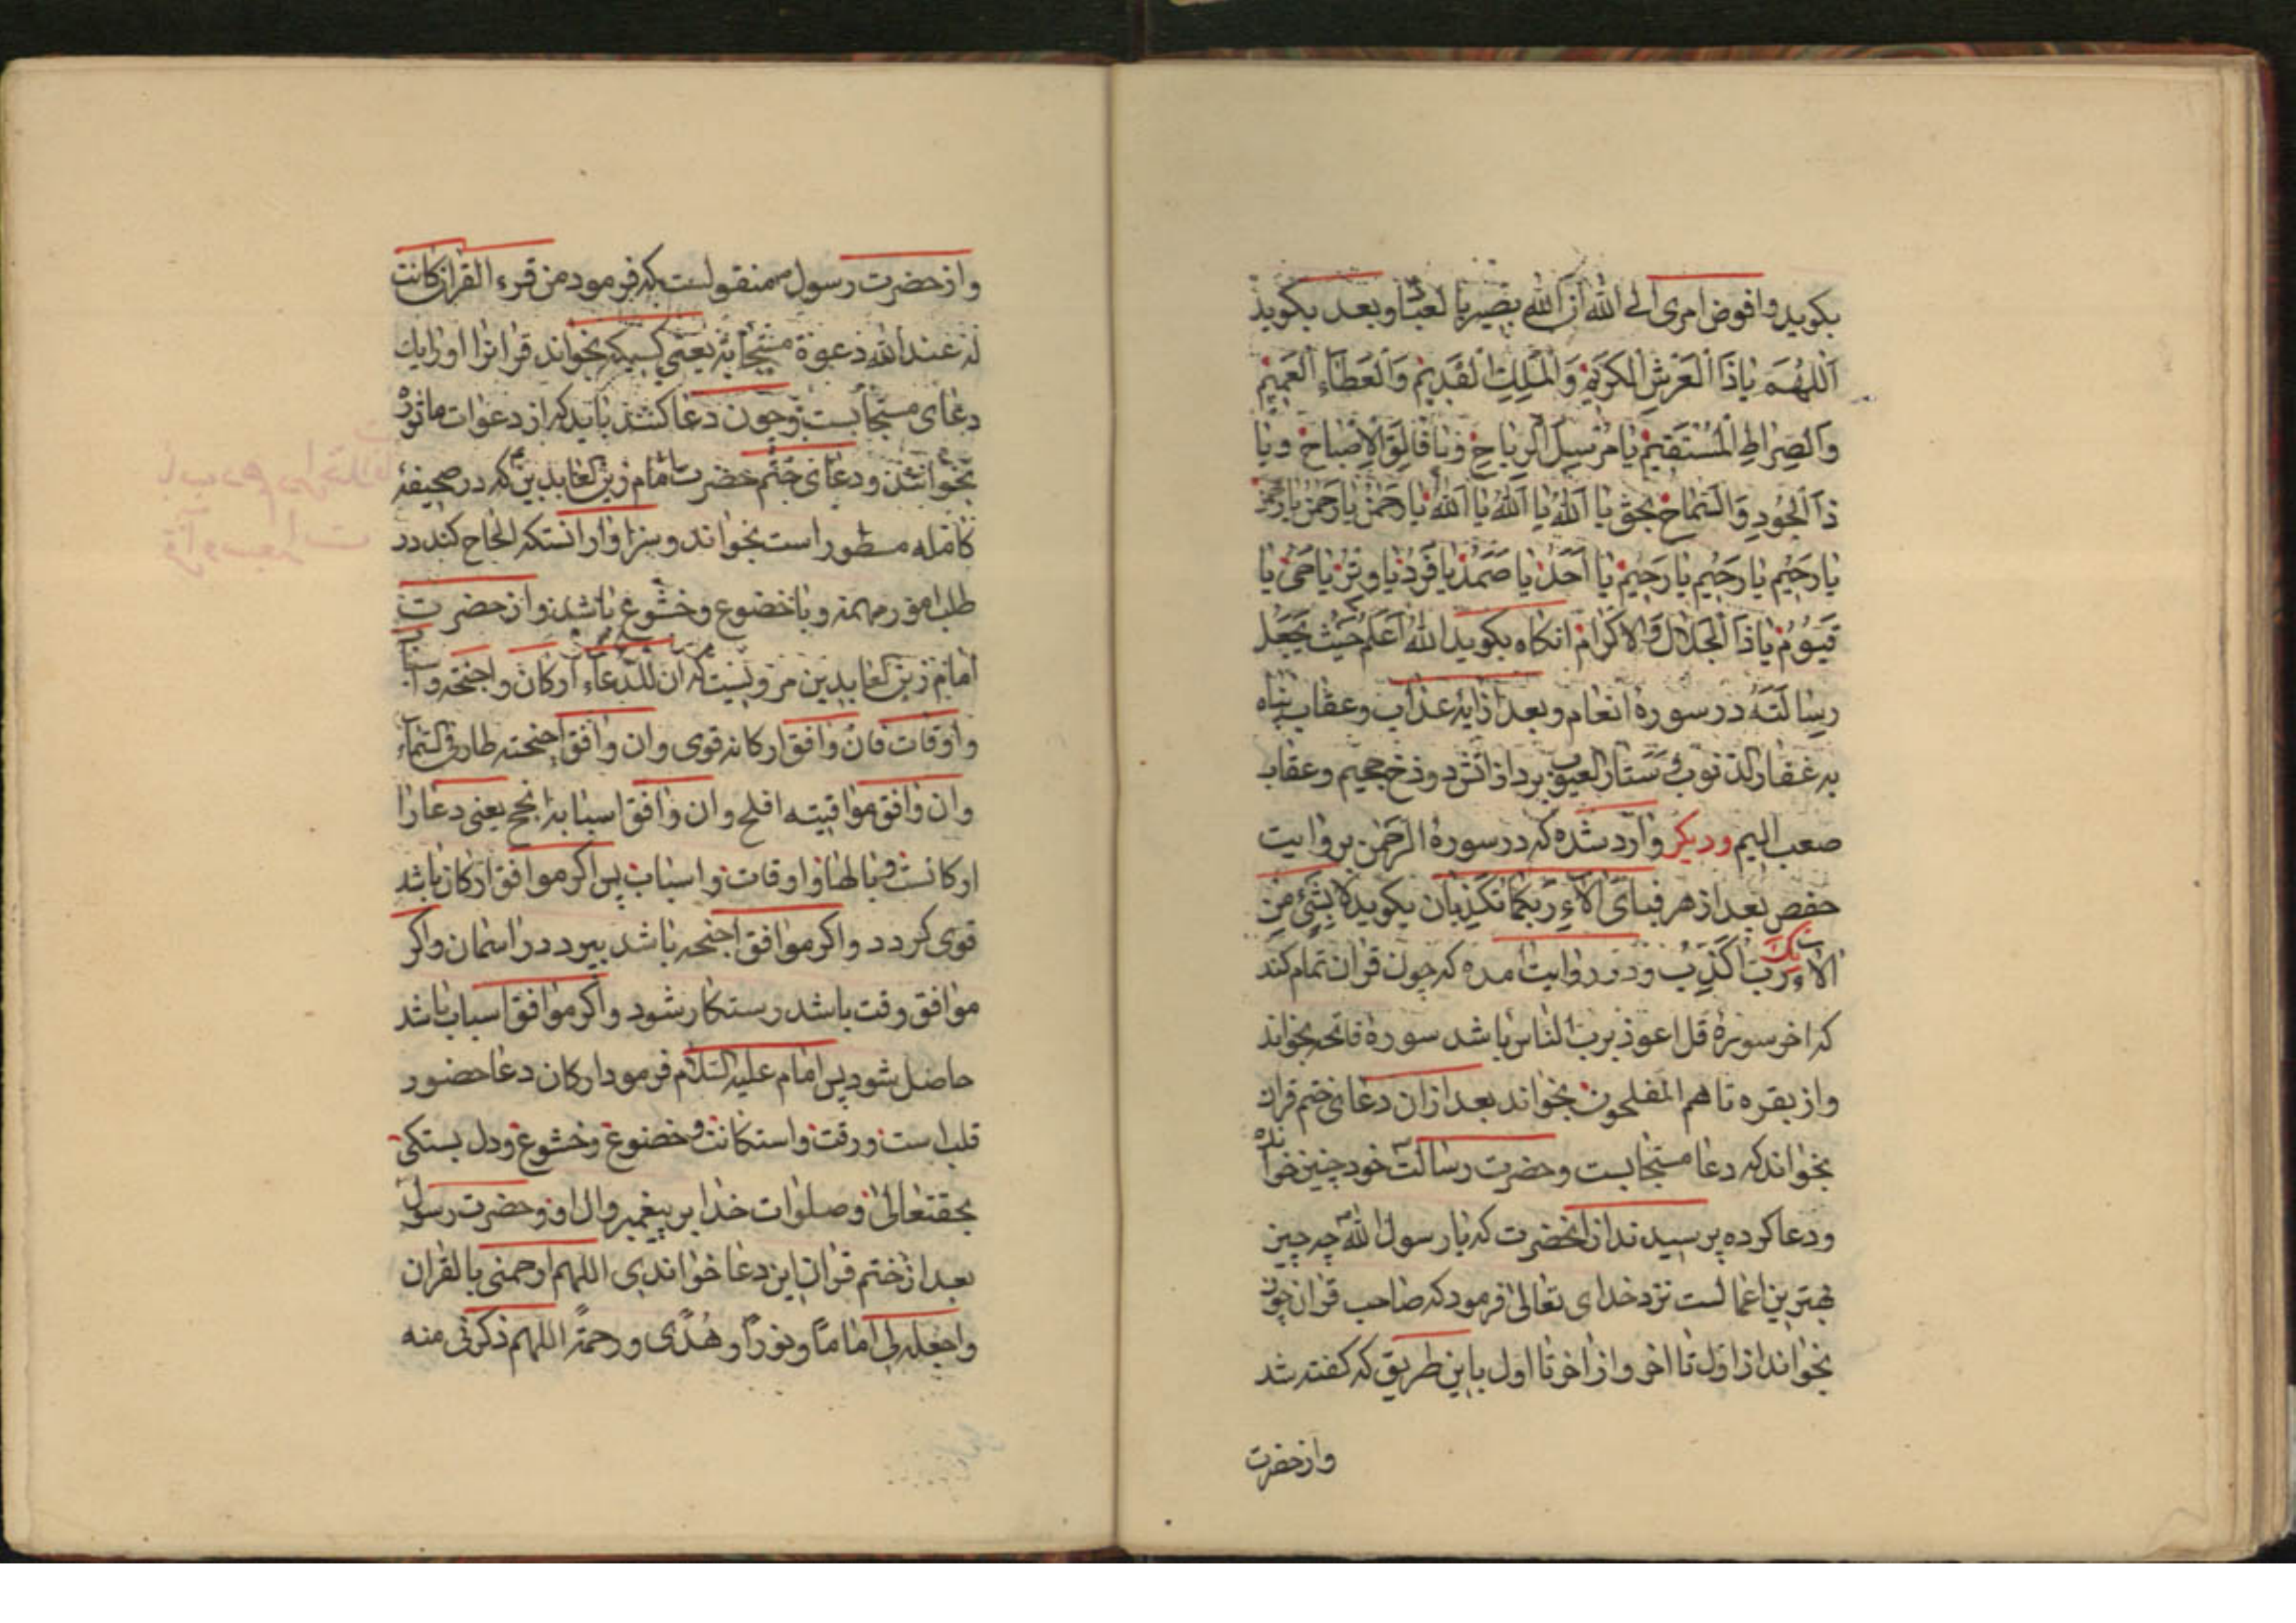 بکوید وافوض امری الی الله ان الله بصیر بالعباد وبعد بکوید
اَللّهُمَّ یاذَا الْعَرْشِ الْکَرِیْمِ وَالْمُلْكِ الْقَدِیْمِ وَالْعَطَاءِ الْعَمِیْمِ
وَالصِّرَاطِ الْمُسْتَقِیْمِ یا مُرْسِلَ الرِّیَاحِ وَیا فَالِقَ الْاِصْبَاحِ وَیا
ذَا الْجُودِ وَالسَّمَاحِ بحق یا اَللهُ یا اَللهُ یا اَللهُ یا رَحْمٰنُ یا رَحْمٰنُ یا رَحْمٰن
یا رَحِیْم یا رَحِیْم یا رَحِیْم یا اَحَدُ یا صَمَدُ یا فَرْدُ یا وِتْرُ یا حَیُّ یا
قَیُّوْمُ یا ذَا الْجَلَالِ وَالْاکْرَام انکاه بکوید اللهُ اَعْلَمُ حَیْثُ یَجْعَلُ
رِسَالَتَهُ در سورۀ انعام وبعد از ایه عذاب وعقاب پناه
به غفار الذنوب و ستار العیوب برد از اتش دوزخ جحیم وعقاب
صعب الیم ودیکر وارد شده که در سورۀ الرحمن بروایت
حفص بعد از هر فبای الاء ربکما تکذبان بکوید لا بشیء من
الاءك رب اکذب ودر روایت امده که چون قران تمام کند
که اخر سورۀ قل اعوذ برب الناس باشد سورۀ فاتحه بخواند
واز بقره تا هم المفلحون بخواند بعد ازان دعای ختم قران
بخواند که دعا مستجابست وحضرت رسالت خود چنین خوانده
ودعا کرده پرسیدند ازانحضرت که یا رسول الله چه چیز
بهترین اعمالست نزد خدای تعالی فرمود که صاحب قران چون
بخواند از اول تا اخر واز اخر تا اول باین طریق که کفته شد
وازحضرت
وازحضرت رسول منقولست که فرمود من قرء القران کانت
له عند الله دعوة مستجابة یعنی کسیکه بخواند قرانرا اورا یك
دعای مستجابست وچون دعا کنند باید که از دعوات ماثوره
بخوانند ودعای ختم حضرت امام زین العابدین که در صحیفه
کامله مسطور است بخواند وسزاوار انستکه الحاح کند در
طلب امور مهمه وباخضوع وخشوع باشد واز حضرت
امام زین العابدین مرویست که ان للدعاء ارکان واجنحه واسباب
واوقات فان وافق ارکانه قوی وان وافق اجنحته طار فی السماء
وان وافق مواقیته افلح وان وافق اسبابه انجح یعنی دعا را
ارکانست وبالها واوقات واسباب پس اکر موافق ارکان باشد
قوی کردد واکر موافق اجنحه باشد بپرد در اسمان واکر
موافق وقت باشد رستکار شود واکر موافق اسباب باشد
حاصل شود پس امام علیه السلام فرمود ارکان دعا حضور
قلب است ورقت واستکانت وخضوع وخشوع ودل بستکی
بحقتعالی وصلوات خدا بر پیغمبر وال او وحضرت رسول
بعد ازختم قران این دعا خواندی اللهم ارحمنی بالقران
واجعله لی اماما ونوراً وهُدًی ورحمةً اللهم ذکرنی منه